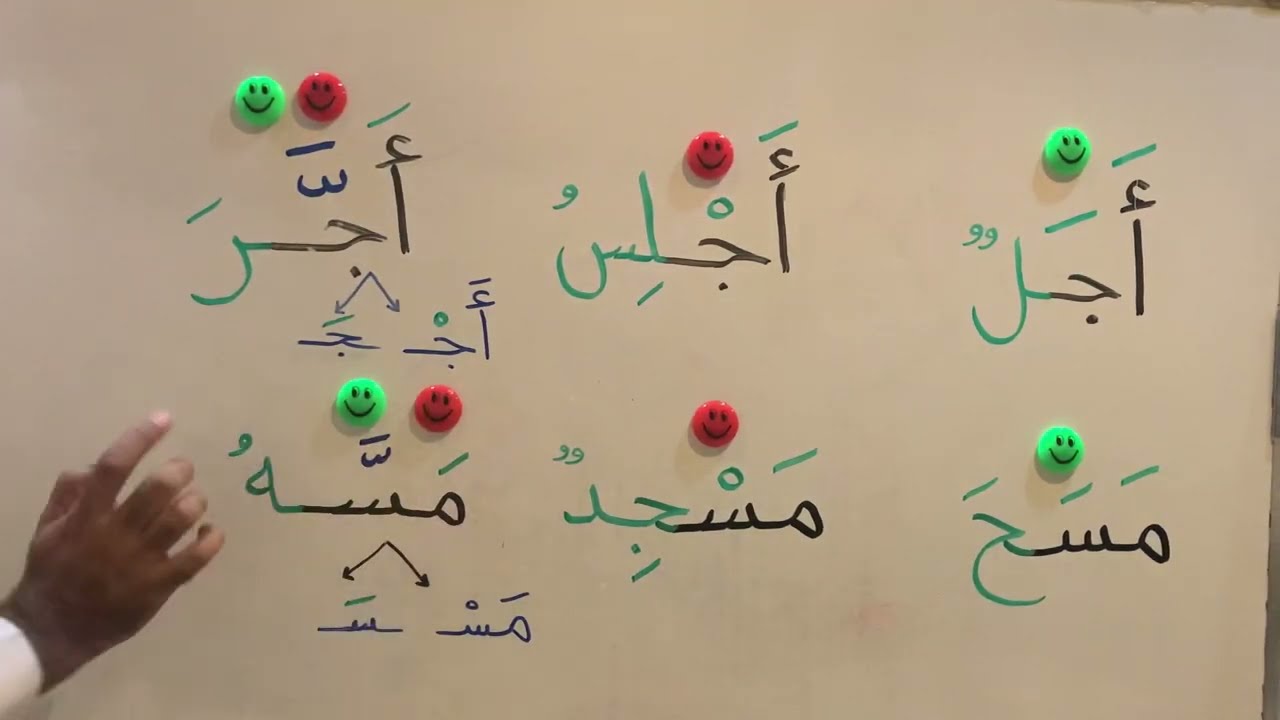 أَجَلٌ أَجْلِسُ أَجَّرَ
أَجْـ ـجَـ
مَسَحَ مَسْجِدٌ مَسَّهُ
مَسْـ ـسَـ